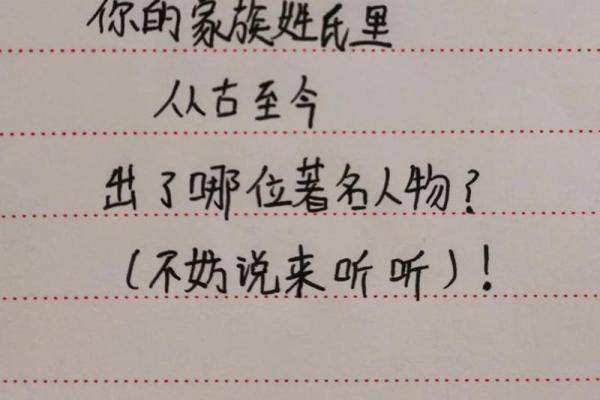 你的家族姓氏里
从古至今
出了哪位著名人物？
（不妨说来听听）！